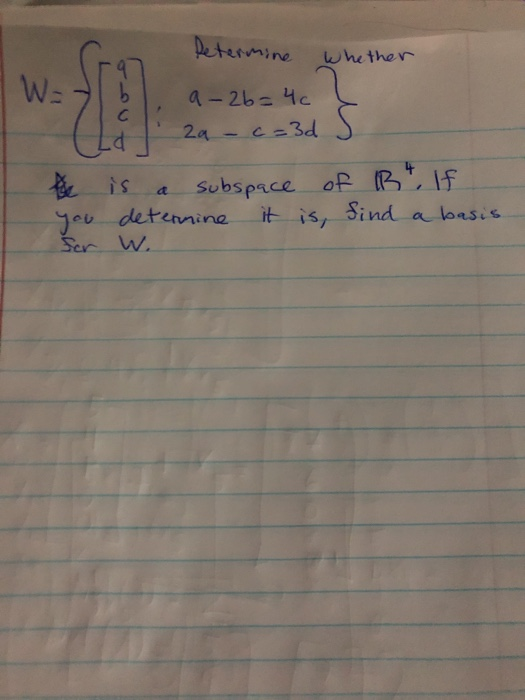 Determine whether
W = { [a b c d] : a - 2b = 4c
2a - c = 3d }
is a subspace of ℝ⁴. If
you determine it is, find a basis
for W.